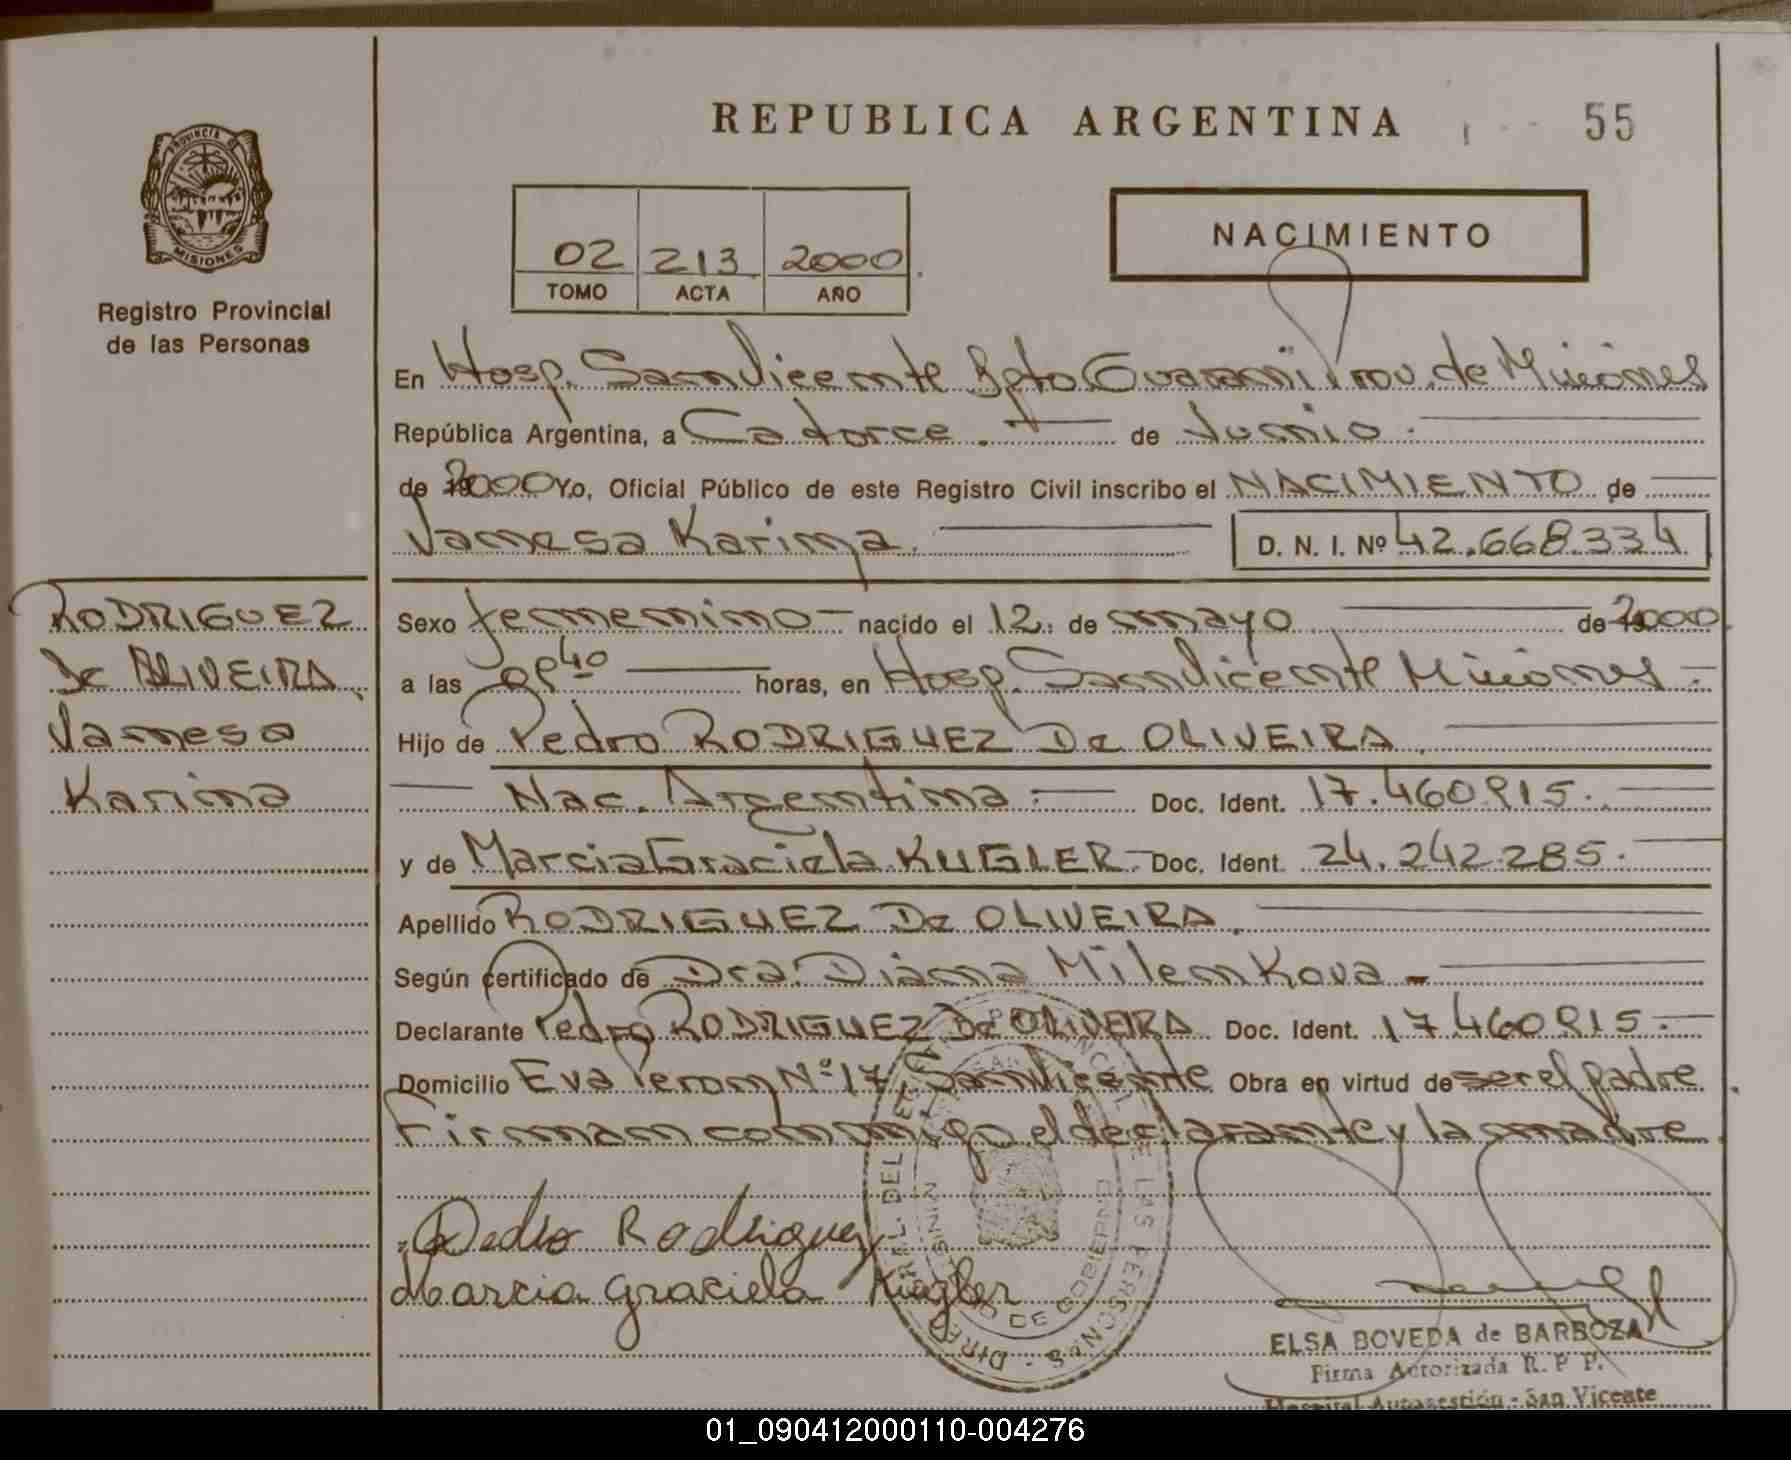 REPUBLICA ARGENTINA
55
PROVINCIA
MISIONES
Registro Provincial
de las Personas
02 213 2000
TOMO ACTA AÑO
NACIMIENTO
En Hosp. San Vicente Dpto Guaraní Prov. de Misiones
República Argentina, a Catorce. de Junio.
de 2000 Yo, Oficial Público de este Registro Civil inscribo el NACIMIENTO de
Vanesa Karina. D. N. I. Nº 42.668.334
RODRIGUEZ
De OLIVEIRA
Vanesa
Karina
Sexo femenino nacido el 12. de mayo de 2000
a las horas, en Hosp. San Vicente Misiones
Hijo de Pedro RODRIGUEZ De OLIVEIRA
Nac. Argentina. Doc. Ident. 17.460.915.
y de Marcia Graciela KUGLER Doc. Ident. 24.242.285.
Apellido RODRIGUEZ De OLIVEIRA.
Según certificado de Dra. Diana Milenkova
Declarante Pedro RODRIGUEZ De OLIVEIRA Doc. Ident. 17.460.915.
Domicilio Eva Peron Nº 17 San Vicente Obra en virtud de ser el padre
Firman conmigo el declarante y la madre.
Pedro Rodriguez
Marcia Graciela Kugler
ELSA BOVEDA de BARBOZA
Firma Autorizada R. P. P.
Hospital Autogestión - San Vicente
01_090412000110-004276